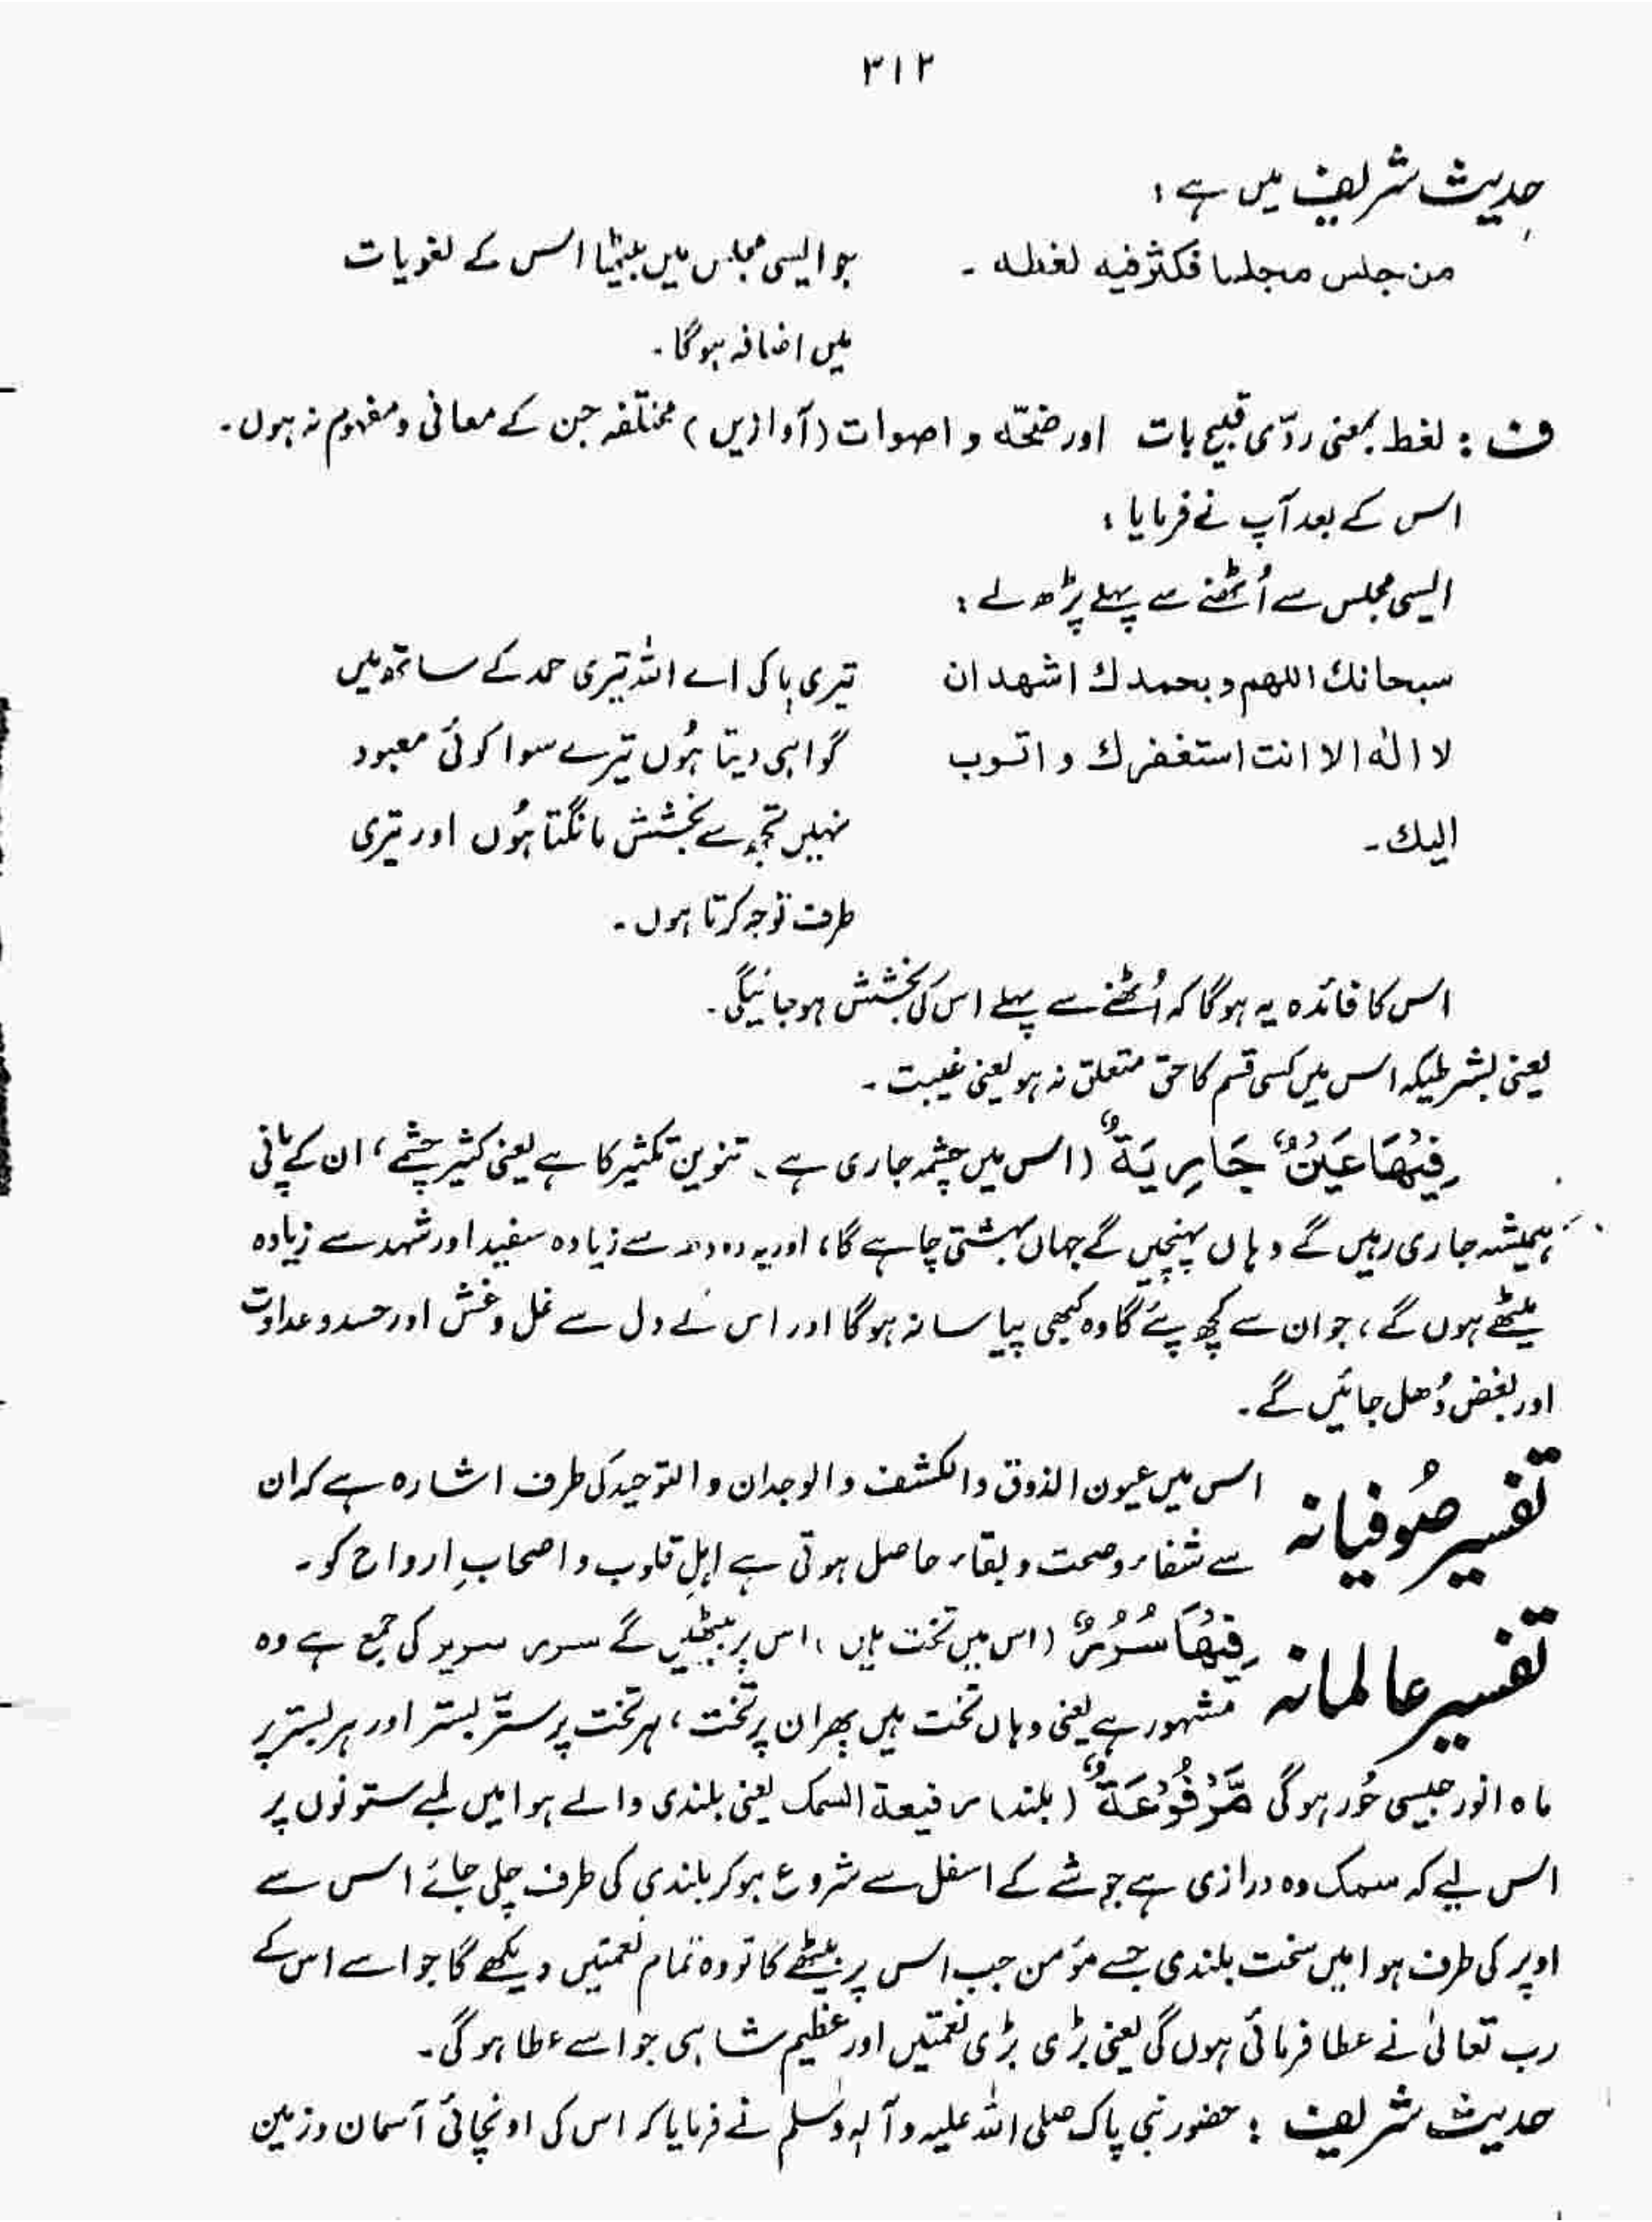 ۳۱۲
حدیث شریف میں ہے :
من جلس مجلسا فکثر فیه لغطه ۔
جو ایسی مجلس میں بیٹھا اس کے لغویات
میں اضافہ ہوگا ۔
ف : لغط بمعنی ردّی قبیح بات اور ضجّہ و اصوات (آوازیں) مختلفہ جن کے معانی و مفہوم نہ ہوں ۔
اس کے بعد آپ نے فرمایا :
ایسی مجلس سے اُٹھنے سے پہلے پڑھ لے :
سبحانك اللهم و بحمدك اشهد ان
لا اله الا انت استغفرك و اتوب
اليك ۔
تیری پاکی اے اللہ تیری حمد کے ساتھ میں
گواہی دیتا ہُوں تیرے سوا کوئی معبود
نہیں تجھ سے بخشش مانگتا ہُوں اور تیری
طرف توجہ کرتا ہوں ۔
اس کا فائدہ یہ ہوگا کہ اُٹھنے سے پہلے اس کی بخشش ہو جائیگی ۔
یعنی بشرطیکہ اس میں کسی قسم کا حق متعلق نہ ہو یعنی غیبت ۔
فِيْهَا عَيْنٌ جَارِيَةٌ (اس میں چشمہ جاری ہے ۔ تنوین تکثیر کا ہے یعنی کثیر چشمے ، ان کے پانی
ہمیشہ جاری رہیں گے وہاں پہنچیں گے جہاں بہشتی چاہے گا ، اور یہ دودھ سے زیادہ سفید اور شہد سے زیادہ
میٹھے ہوں گے ، جو ان سے کچھ پئے گا وہ کبھی پیاسا نہ ہوگا اور اس کے دل سے غل و غش اور حسد و عداوت
اور بغض دُھل جائیں گے ۔
تفسیر صُوفیانہ اس میں عیون الذوق والکشف والوجدان والتوحید کی طرف اشارہ ہے کہ ان
سے شفاء و صحت و بقاء حاصل ہوتی ہے اہلِ قلوب و اصحابِ ارواح کو ۔
تفسیر عالمانہ فِيْهَا سُرُرٌ (اس میں تخت ہیں ، اس پر بیٹھیں گے سرر سریر کی جمع ہے وہ
مشہور ہے یعنی وہاں تخت ہیں پھر ان پر تخت ، ہر تخت پر ستّر بستر اور ہر بستر پر
ماہ انور جیسی حُور ہوگی مَّرْفُوْعَةٌ (بلند) رفیعة السمک یعنی بلندی والے ہوا میں لمبے ستونوں پر
اس لیے کہ سمک وہ درازی ہے جو شے کے اسفل سے شروع ہو کر بلندی کی طرف چلی جائے اس سے
اوپر کی طرف ہوا میں سخت بلندی جسے مؤمن جب اس پر بیٹھے گا تو وہ تمام نعمتیں دیکھے گا جو اسے اس کے
رب تعالیٰ نے عطا فرمائی ہوں گی یعنی بڑی بڑی نعمتیں اور عظیم شاہی جو اسے عطا ہوگی ۔
حدیث شریف : حضور نبی پاک صلی اللہ علیہ وآلہٖ وسلم نے فرمایا کہ اس کی اونچائی آسمان و زمین